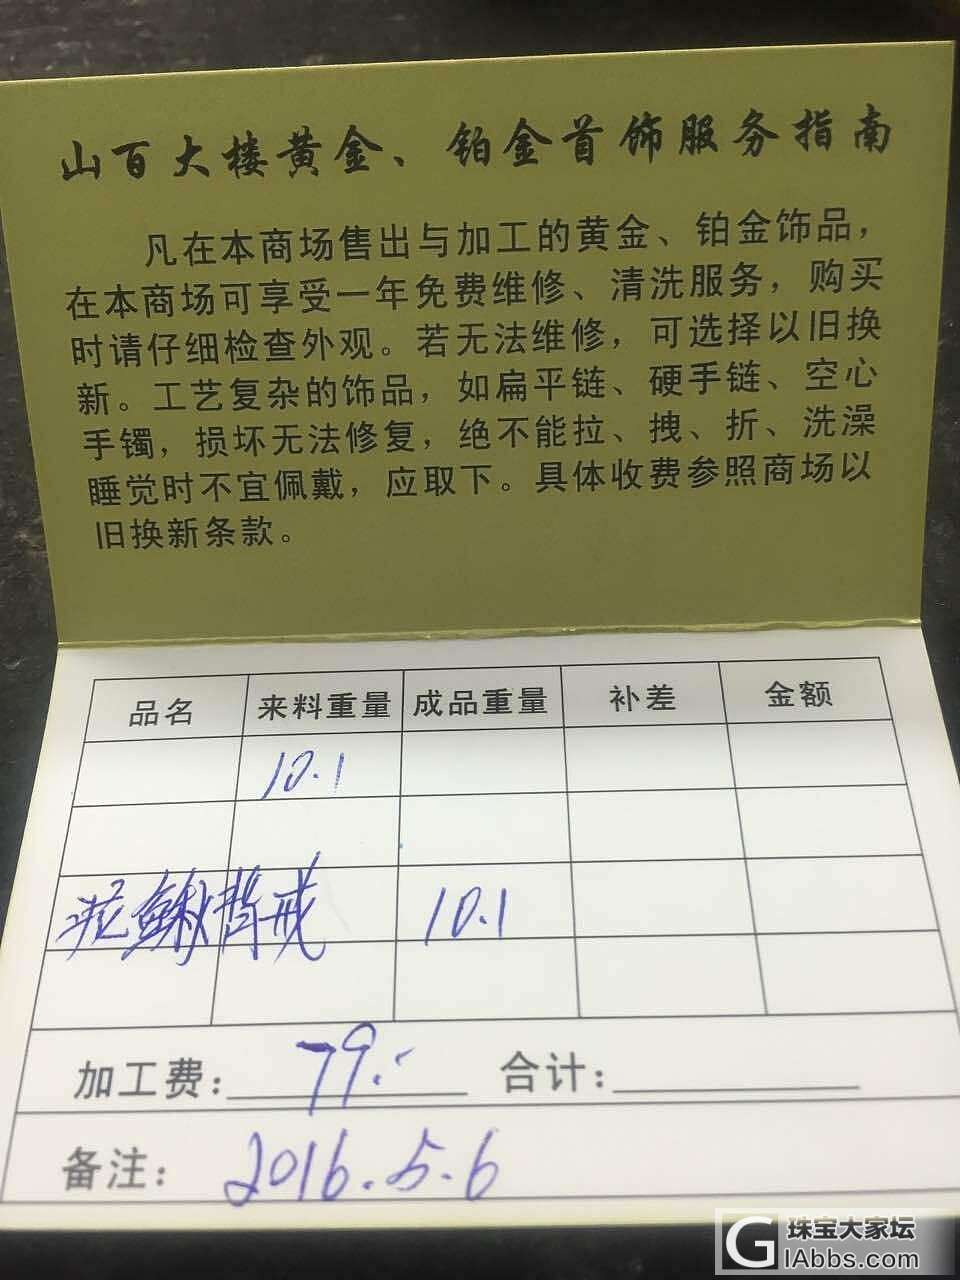 山百大楼黄金、铂金首饰服务指南
凡在本商场售出与加工的黄金、铂金饰品，
在本商场可享受一年免费维修、清洗服务，购买
时请仔细检查外观。若无法维修，可选择以旧换
新。工艺复杂的饰品，如扁平链、硬手链、空心
手镯，损坏无法修复，绝不能拉、拽、折、洗澡
睡觉时不宜佩戴，应取下。具体收费参照商场以
旧换新条款。
品名 来料重量 成品重量 补差 金额
10.1
鳅背戒 10.1
加工费： 79.-
合计：
备注： 2016.5.6
珠宝大家坛
GIAbbs.com